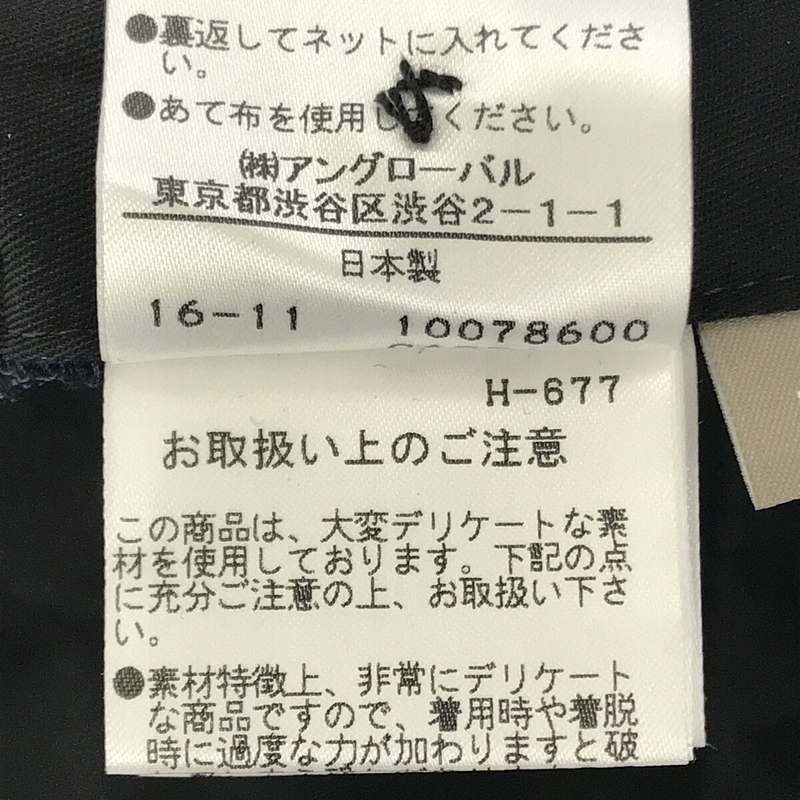 ●裏返してネットに入れてくださ
い。
●あて布を使用してください。
㈱アングローバル
東京都渋谷区渋谷2-1-1
日本製
16-11 10078600
H-677
お取扱い上のご注意
この商品は、大変デリケートな素
材を使用しております。下記の点
に充分ご注意の上、お取扱い下さ
い。
●素材特徴上、非常にデリケート
な商品ですので、着用時や着脱
時に過度な力が加わりますと破